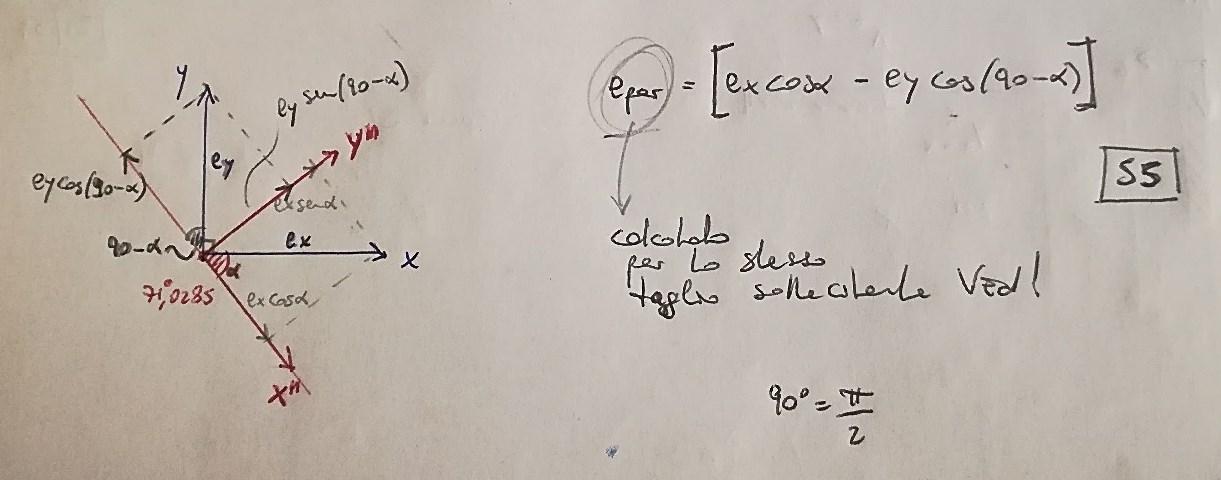 y
ey sen(90-α)
y"
ey
ey cos(90-α)
ex senα
90-α
ex
x
α
71,°0285
ex cosα
x"
epar = [ex cosα - ey cos(90-α)]
S5
calcolato
per lo stesso
taglio sollecitante VEd!
90° = π/2